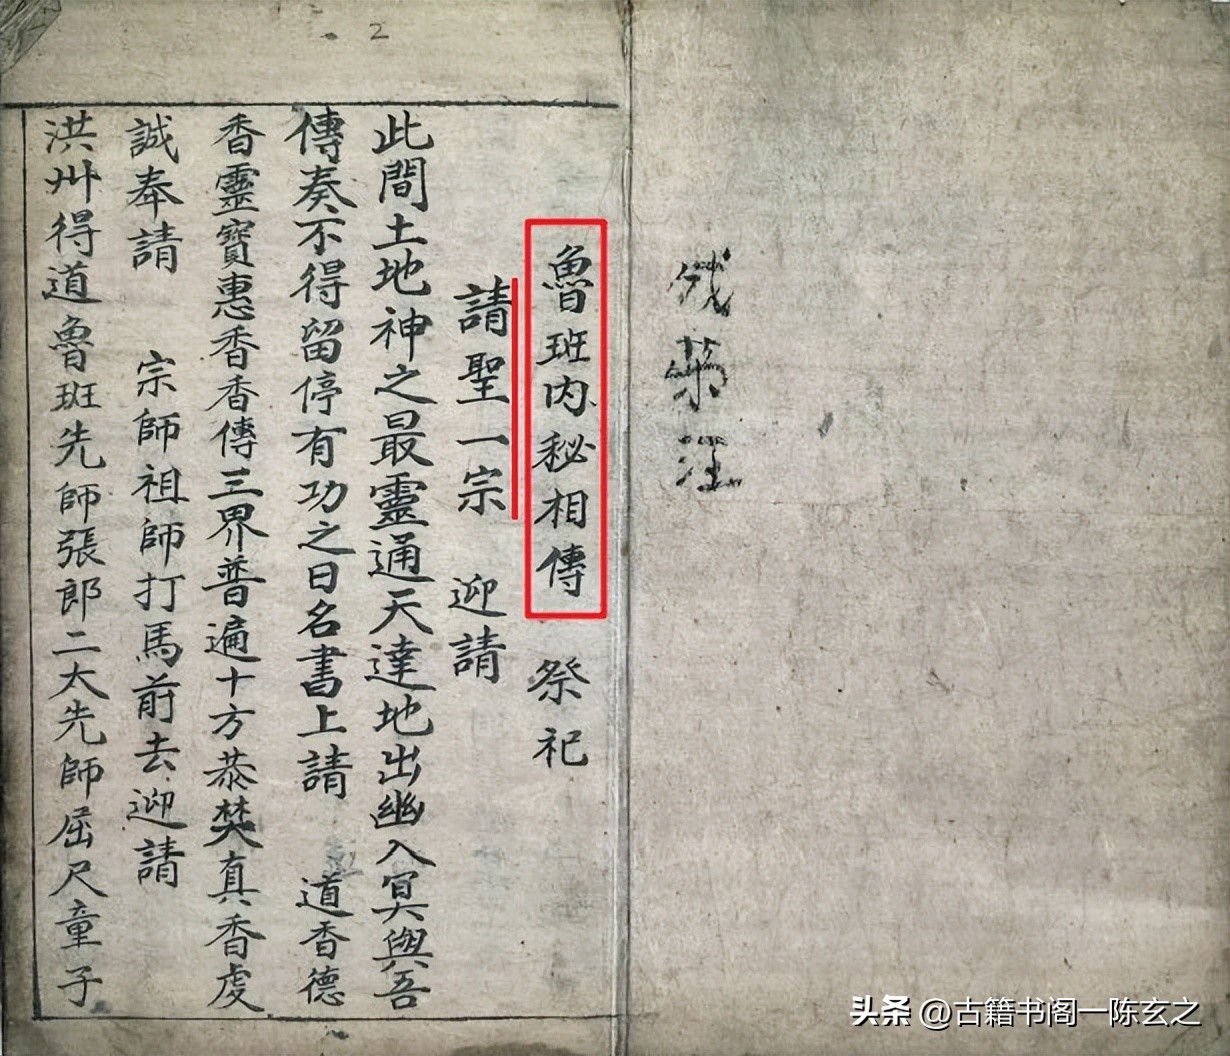 2
魯班内秘相傳 祭祀
請聖一宗 迎請
此間土地神之最靈通天達地出幽入冥與吾
傳奏不得留停有功之日名書上請 道香德
香靈寶惠香香傳三界普遍十方恭焚真香虔
誠奉請 宗師祖師打馬前去迎請
洪州得道魯班先師張郎二大先師屈尺童子
头条 @古籍书阁一陈玄之